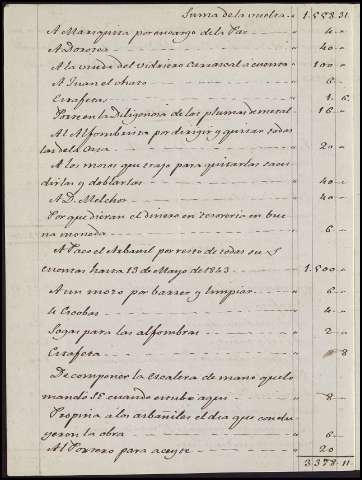 Suma de la vuelta 1.558.31
A Mariquita por encargo de la Paz 4
A Dorotea 40
A la viuda del vidriero Carrascal a cuenta 100
A Juan el chato 6
Estafetas 1. 6
Porte en la Diligencia de las plumas de metal 16
Al Alfombrista por dirigir y quitar todas
las de la Casa 20
A los mozos que trajo para quitarlas sacu
dirlas y doblarlas 40
A D. Melchor 40
Por que dieran el dinero en tesoreria en bue
na moneda 6
A Paco el Albañil por resto de todas sus
cuentas hasta 13 de Mayo de 1843 1.500
A un mozo por barrer y limpiar 6
4 Escobas 4
Sogas para las alfombras 2
Estafeta 8
De componer la escalera de mano que lo
mandó SE cuando estubo aqui 8
Propina a los albañiles el dia que condu
yeron la obra 6
Al Portero para aceyte 20
3.378.11